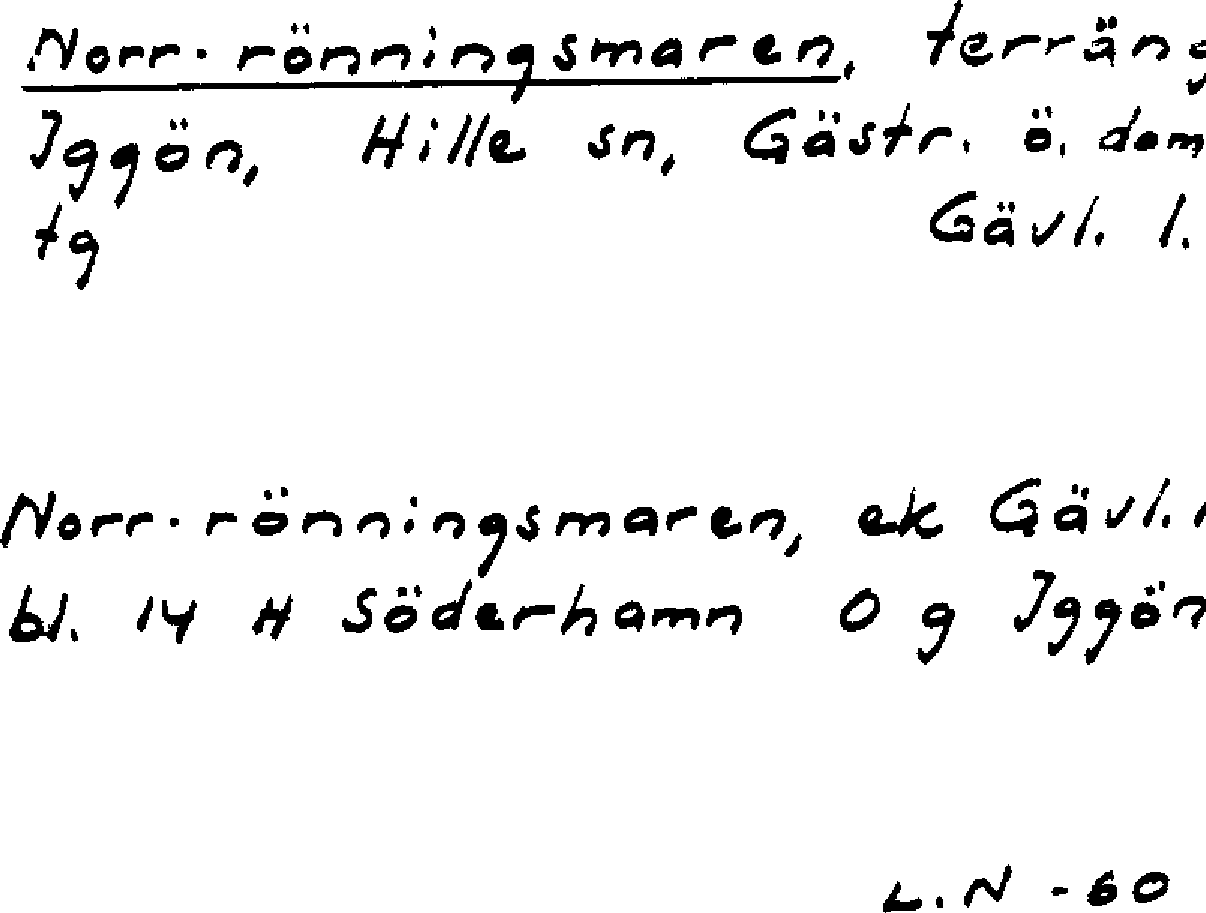 Norr-rönningsmaren, terräng
Iggön, Hille sn, Gästr. ö. dom
tg Gävl. l.
Norr-rönningsmaren, ek Gävl. l
bl. 14 H Söderhamn O g Iggön
L.N -60